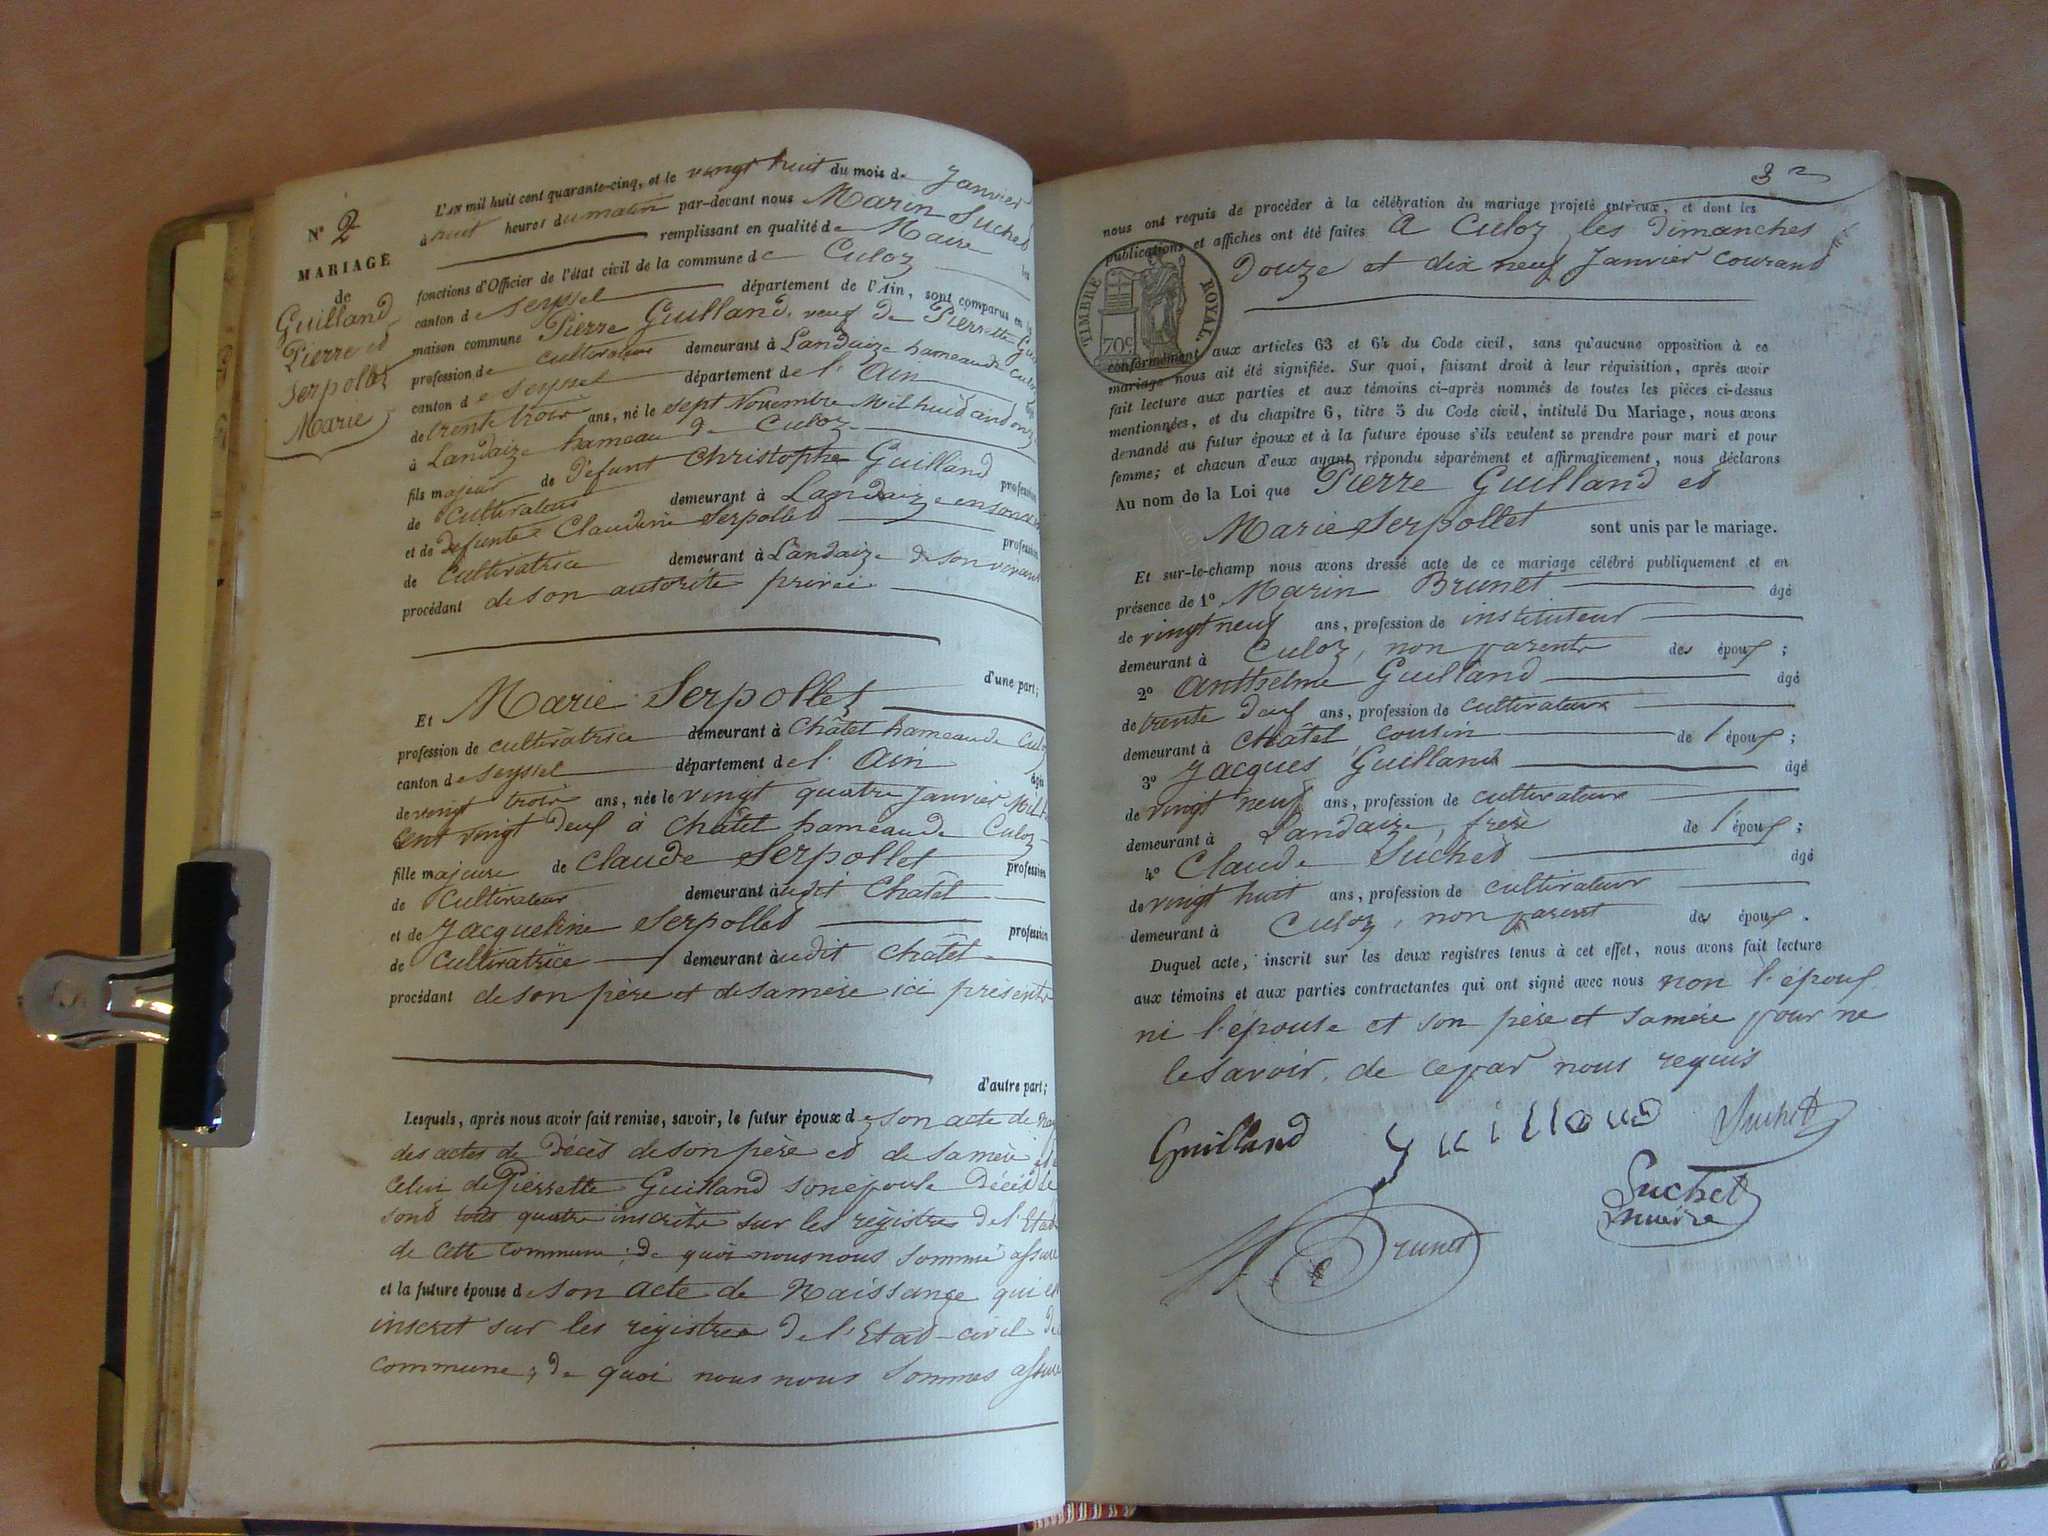 N° 2
MARIAGE
de
Guilland
Pierre et
Serpollet
Marie
L'AN mil huit cent quarante-cinq, et le vingt huit du mois de Janvier
à huit heures du matin par-devant nous Marin Suchet
remplissant en qualité de Maire les
fonctions d'Officier de l'état civil de la commune de Culoz
canton de Seyssel département de l'Ain, sont comparus en la
maison commune Pierre Guilland, veuf de Pierrette
profession de cultivateur demeurant à Landaize hameau de Culoz
canton de Seyssel département de l'Ain
de trente trois ans, né le sept Novembre Mil huit cent onze
à Landaize hameau de Culoz
fils majeur de Défunt Christophe Guilland profession
de Cultivateur demeurant à Landaize
et de Défunte Claudine Serpollet profession
de Cultivatrice demeurant à Landaize de son vivant
procédant de son autorité privée
d'une part;
Et Marie Serpollet
profession de cultivatrice demeurant à Châtel hameau de Culoz
canton de Seyssel département de l'Ain âgée
de vingt trois ans, née le vingt quatre Janvier Mil huit
cent vingt deux à Châtel hameau de Culoz
fille majeure de Claude Serpollet profession
de Cultivateur demeurant audit Châtel
et de Jacqueline Serpollet profession
de Cultivatrice demeurant audit Châtel
procédant de son père et de sa mère ici présents
d'autre part;
Lesquels, après nous avoir fait remise, savoir, le futur époux de son acte de
des actes de Décès de son père et de sa mère et de
celui de Pierrette Guilland son épouse Décédée
sont tous quatre inscrits sur les régistres de l'Etat
de cette commune; de quoi nous nous sommes assuré
et la future épouse de son acte de Naissance qui est
inscrit sur les régistres de l'Etat-civil de
commune; de quoi nous nous sommes assuré
3
nous ont requis de procéder à la célébration du mariage projeté entr'eux, et dont les
publications et affiches ont été faites A Culoz les dimanches
douze et dix neuf Janvier courant
TIMBRE ROYAL
70c
conformément aux articles 63 et 64 du Code civil, sans qu'aucune opposition à ce
mariage nous ait été signifiée. Sur quoi, faisant droit à leur réquisition, après avoir
fait lecture aux parties et aux témoins ci-après nommés de toutes les pièces ci-dessus
mentionnées, et du chapitre 6, titre 5 du Code civil, intitulé Du Mariage, nous avons
demandé au futur époux et à la future épouse s'ils veulent se prendre pour mari et pour
femme; et chacun d'eux ayant répondu séparément et affirmativement, nous déclarons
Au nom de la Loi que Pierre Guilland et
Marie Serpollet sont unis par le mariage.
Et sur-le-champ nous avons dressé acte de ce mariage célébré publiquement et en
présence de 1° Marin Brunet âgé
de vingt neuf ans, profession de instituteur
demeurant à Culoz, non parent des époux;
2° Anthelme Guilland âgé
de trente deux ans, profession de cultivateur
demeurant à Châtel cousin de l'époux;
3° Jacques Guilland âgé
de vingt neuf ans, profession de cultivateur
demeurant à Landaize, frère de l'époux;
4° Claude Suchet âgé
de vingt huit ans, profession de cultivateur
demeurant à Culoz, non parent des époux.
Duquel acte, inscrit sur les deux registres tenus à cet effet, nous avons fait lecture
aux témoins et aux parties contractantes qui ont signé avec nous non l'époux
ni l'épouse et son père et sa mère pour ne
le savoir, de ce par nous requis
Guilland guilland Suchet
M Brunet
Suchet